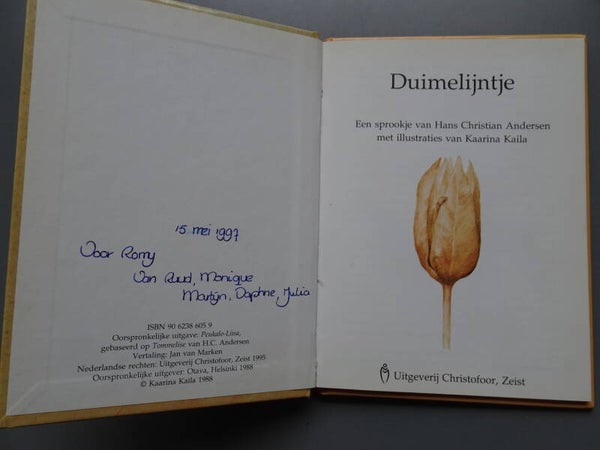 15 mei 1997
Voor Romy
Van Ruud, Monique
Martijn, Daphne, Julia
ISBN 90 6238 605 9
Oorspronkelijke uitgave: Peukalo-Liisa,
gebaseerd op Tommelise van H.C. Andersen
Vertaling: Jan van Marken
Nederlandse rechten: Uitgeverij Christofoor, Zeist 1995
Oorspronkelijke uitgever: Otava, Helsinki 1988
© Kaarina Kaila 1988
Duimelijntje
Een sprookje van Hans Christian Andersen
met illustraties van Kaarina Kaila
Uitgeverij Christofoor, Zeist